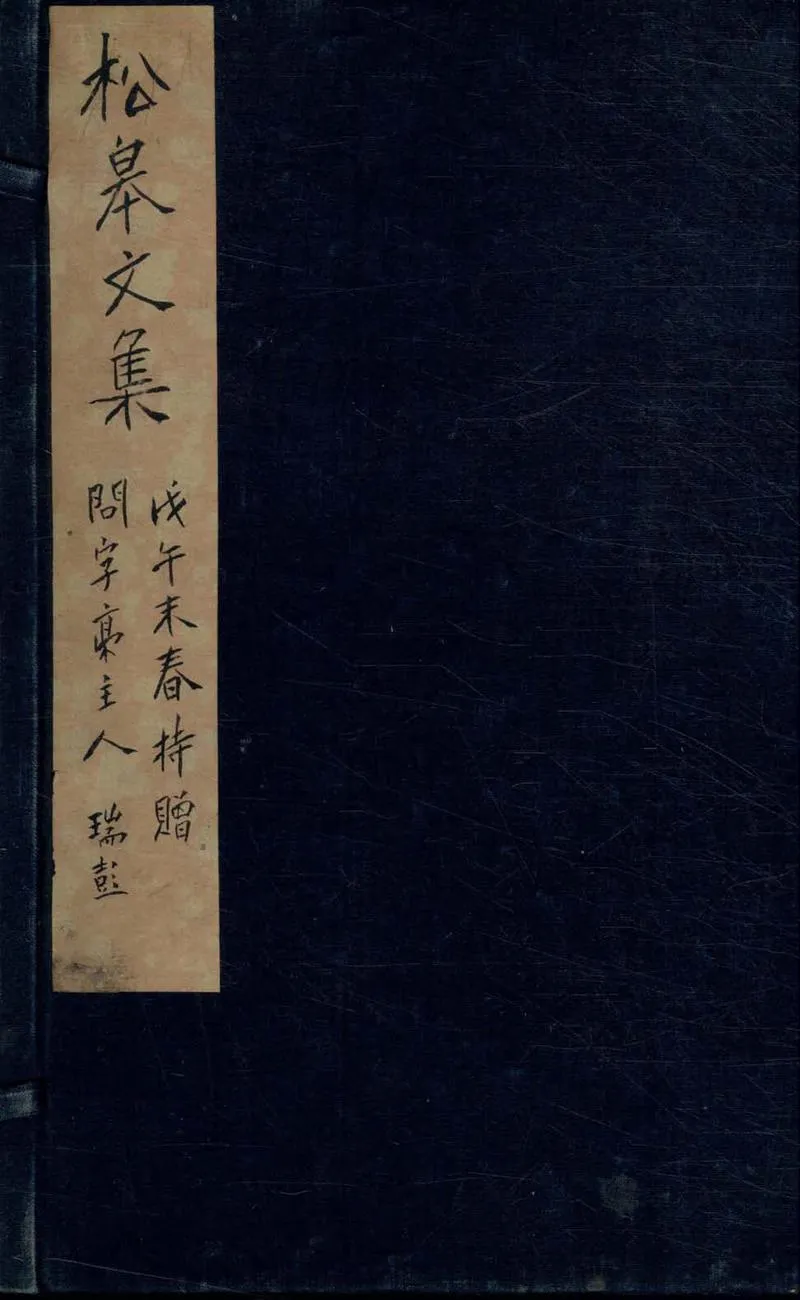 松皋文集
戊午末春持贈
問字亭主人 瑞彭